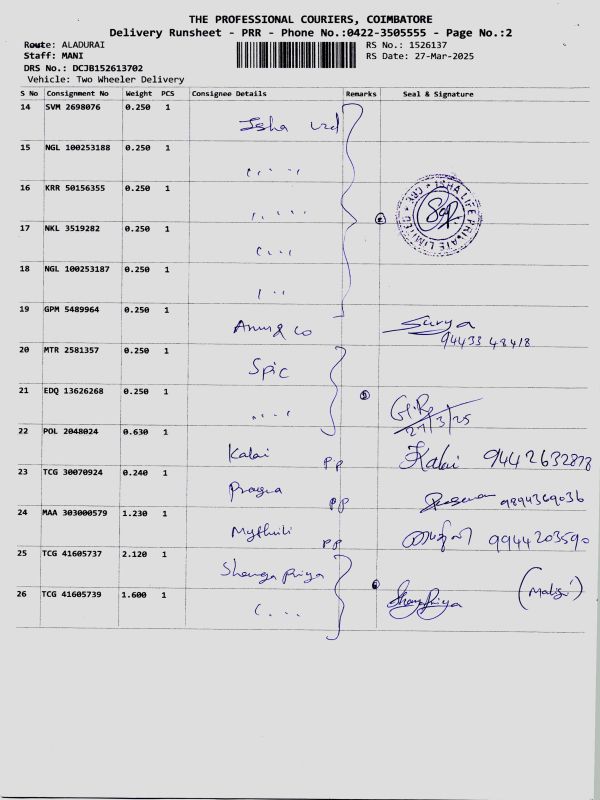 THE PROFESSIONAL COURIERS, COIMBATORE
Delivery Runsheet - PRR - Phone No.:0422-3505555 - Page No.:2
Route: ALADURAI
RS No.: 1526137
Staff: MANI
RS Date: 27-Mar-2025
DRS No.: DCJB152613702
Vehicle: Two Wheeler Delivery
S No Consignment No Weight PCS Consignee Details Remarks Seal & Signature
14 SVM 2698076 0.250 1 Isha
15 NGL 100253188 0.250 1
16 KRR 50156355 0.250 1
ISHA LIFE PRIVATE LIMITED
17 NKL 3519282 0.250 1
18 NGL 100253187 0.250 1
19 GPM 5489964 0.250 1 Surya
94433 48418
20 MTR 2581357 0.250 1 Spic
21 EDQ 13626268 0.250 1 5
27/3/25
22 POL 2048024 0.630 1 Kalai PP Kalai 9442632878
23 TCG 30070924 0.240 1 Pragna PP 9894369036
24 MAA 303000579 1.230 1 Mythili PP 9944203590
25 TCG 41605737 2.120 1 Shanga Priya
26 TCG 41605739 1.600 1